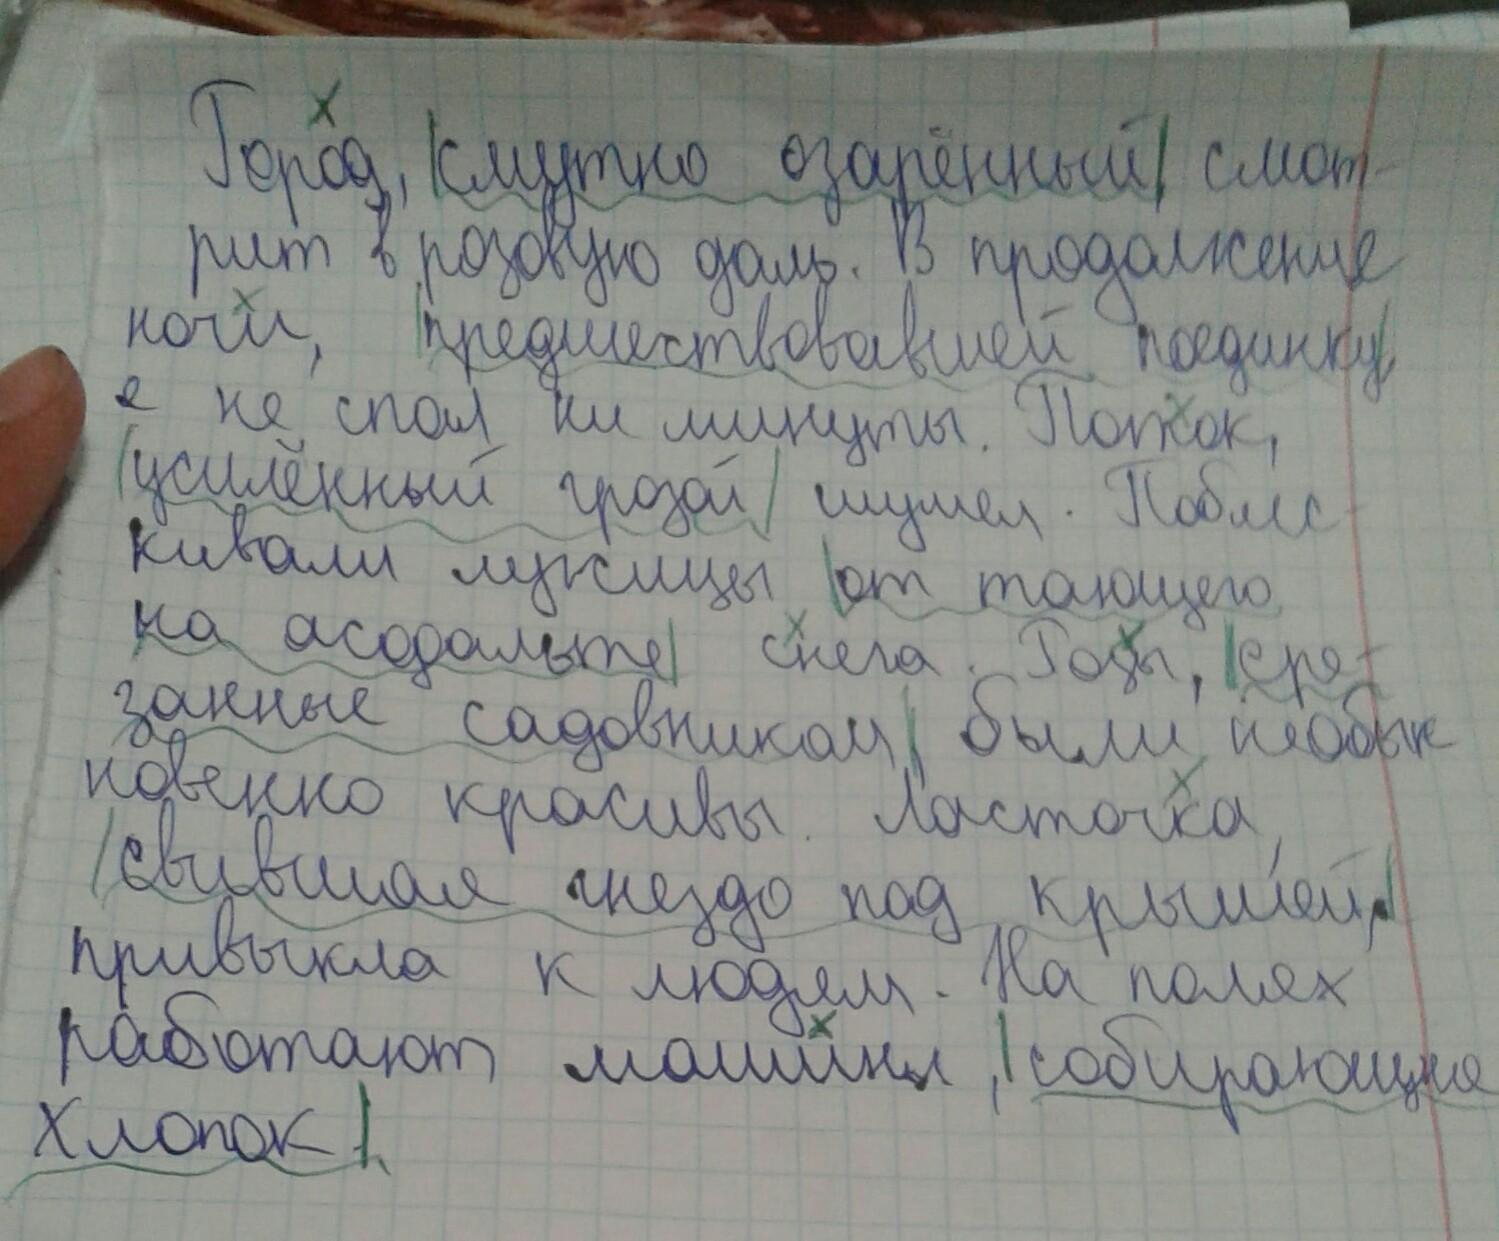 Город, смутно озарённый смот-
рит в розовую даль. В продолжение
ночи, предшествовавшей поединку,
я не спал ни минуты. Поток,
усилённый грозой шумел. Поблес-
кивали лужицы от тающего
на асфальте снега. Розы, сре-
занные садовником были необык
новенно красивы. Ласточка,
свившая гнездо под крышей,
привыкла к людям. На полях
работают машины, собирающие
хлопок.